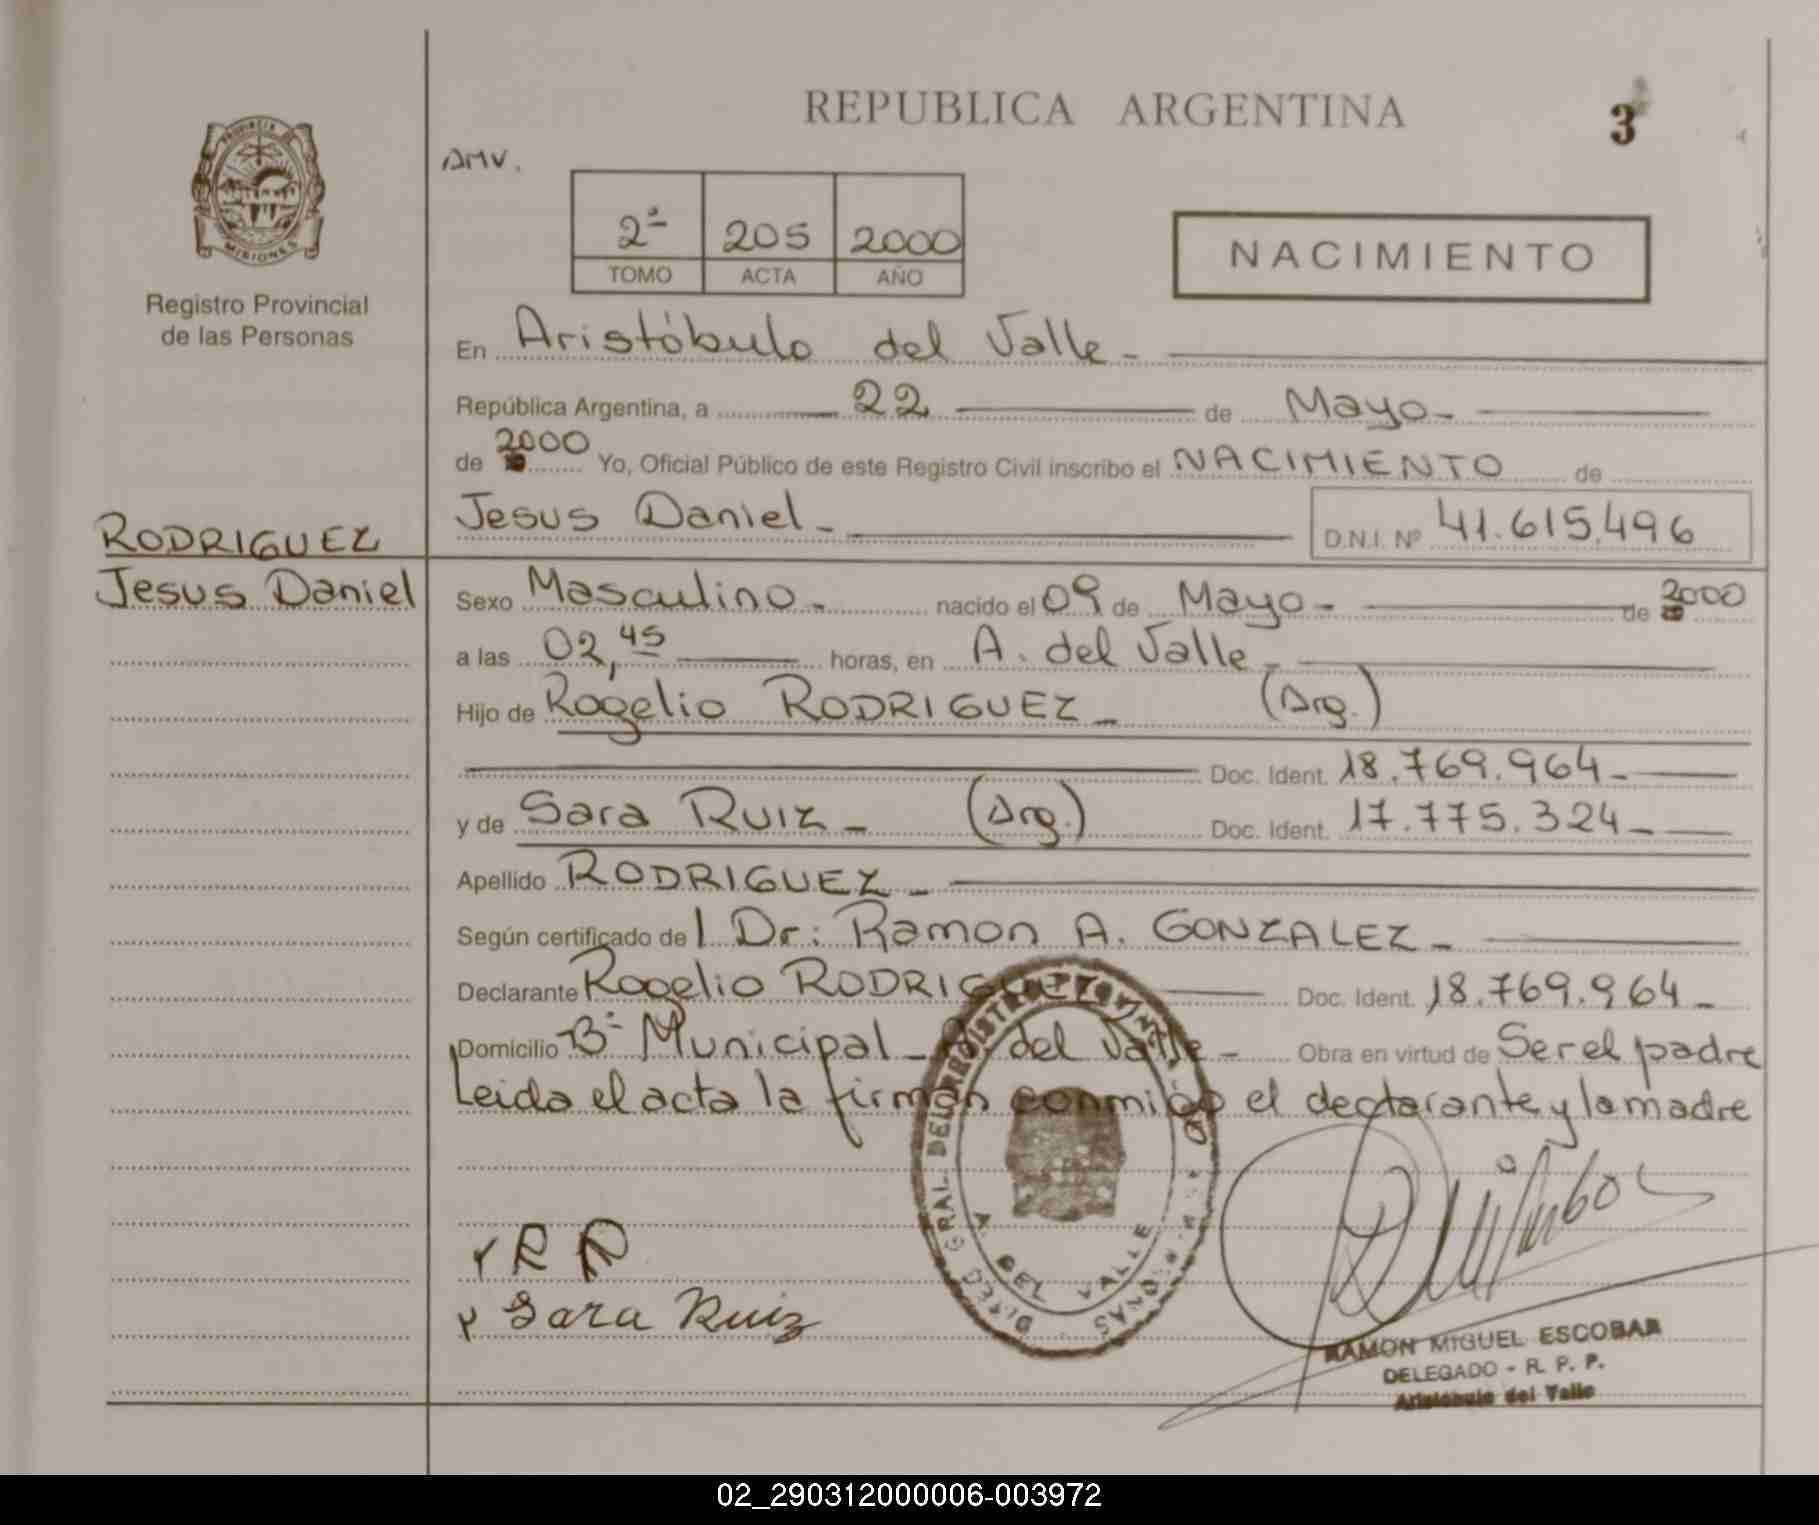 REPUBLICA ARGENTINA
3
AMV.
PROVINCIA
MISIONES
Registro Provincial
de las Personas
2ª 205 2000
TOMO ACTA AÑO
NACIMIENTO
En Aristóbulo del Valle -
República Argentina, a 22 de Mayo -
de 2000 Yo, Oficial Público de este Registro Civil inscribo el NACIMIENTO de
Jesus Daniel - D.N.I. Nº 41.615.496
RODRIGUEZ
Jesus Daniel
Sexo Masculino - nacido el 09 de Mayo - de 2000
a las 02,45 horas, en A. del Valle -
Hijo de Rogelio RODRIGUEZ - (Arg.)
Doc. Ident. 18.769.964 -
y de Sara RUIZ - (Arg.) Doc. Ident. 17.775.324 -
Apellido RODRIGUEZ -
Según certificado del Dr: Ramon A. GONZALEZ -
Declarante Rogelio RODRIGUEZ Doc. Ident. 18.769.964 -
Domicilio Bº Municipal - A. del Valle - Obra en virtud de Ser el padre
Leida el acta la firman conmigo el declarante y la madre
A. DEL VALLE
R R
Sara Ruiz
RAMON MIGUEL ESCOBAR
DELEGADO - R. P. P.
Aristóbulo del Valle
02_290312000006-003972